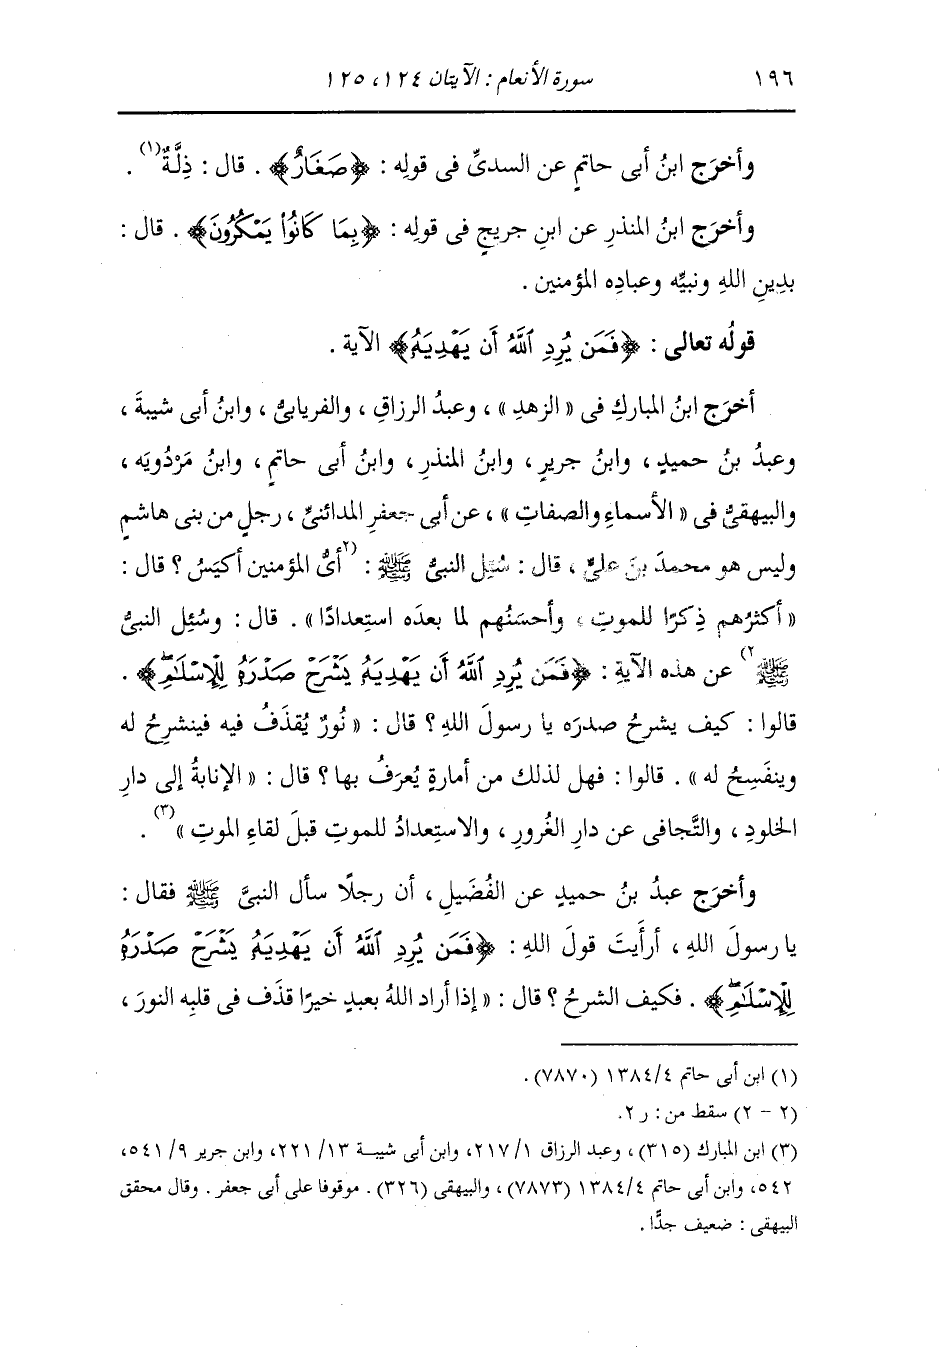 ١٩٦ سورة الأنعام : الآيتان ١٢٤، ١٢٥
وأخرَج ابنُ أبى حاتمٍ عن السدىِّ فى قولِه : ﴿صَغَارٌ﴾ . قال : ذِلَّةٌ(١) .
وأخرَج ابنُ المنذرِ عن ابنِ جريجٍ فى قولِه : ﴿بِمَا كَانُوا۟ يَمْكُرُونَ﴾ . قال :
بدِينِ اللهِ ونبيِّه وعبادِه المؤمنين .
قولُه تعالى : ﴿فَمَن يُرِدِ ٱللَّهُ أَن يَهْدِيَهُۥ﴾ الآية .
أخرَج ابنُ المباركِ فى « الزهدِ » ، وعبدُ الرزاقِ ، والفريابىُّ ، وابنُ أبى شيبةَ ،
وعبدُ بنُ حميدٍ ، وابنُ جريرٍ ، وابنُ المنذرِ ، وابنُ أبى حاتمٍ ، وابنُ مَرْدُويَه ،
والبيهقىُّ فى « الأسماءِ والصفاتِ » ، عن أبى جعفرٍ المدائنىِّ ، رجلٍ من بنى هاشمٍ
وليس هو محمدَ بنَ علىٍّ ، قال : سُئِل النبىُّ ﷺ : (٢أىُّ المؤمنين أكيَسُ ؟ قال :
« أكثرُهم ذِكرًا للموتِ ، وأحسَنُهم لما بعدَه استِعدادًا » . قال : وسُئِل النبىُّ
ﷺ٢) عن هذه الآيةِ : ﴿فَمَن يُرِدِ ٱللَّهُ أَن يَهْدِيَهُۥ يَشْرَحْ صَدْرَهُۥ لِلْإِسْلَٰمِۖ﴾ .
قالوا : كيف يشرحُ صدرَه يا رسولَ اللهِ ؟ قال : « نُورٌ يُقذَفُ فيه فينشرِحُ له
وينفَسِحُ له » . قالوا : فهل لذلك من أمارةٍ يُعرَفُ بها ؟ قال : « الإنابةُ إلى دارِ
الخلودِ ، والتَّجافى عن دارِ الغُرورِ ، والاستِعدادُ للموتِ قبلَ لقاءِ الموتِ »(٣) .
وأخرَج عبدُ بنُ حميدٍ عن الفُضَيلِ ، أن رجلًا سأل النبىَّ ﷺ فقال :
يا رسولَ اللهِ ، أرأَيتَ قولَ اللهِ : ﴿فَمَن يُرِدِ ٱللَّهُ أَن يَهْدِيَهُۥ يَشْرَحْ صَدْرَهُۥ
لِلْإِسْلَٰمِۖ﴾ . فكيف الشرحُ ؟ قال : « إذا أراد اللهُ بعبدٍ خيرًا قذَف فى قلبِه النورَ ،
(١) ابن أبى حاتم ١٣٨٤/٤ (٧٨٧٠) .
(٢ - ٢) سقط من : ر ٢.
(٣) ابن المبارك (٣١٥) ، وعبد الرزاق ١/ ٢١٧، وابن أبى شيبة ١٣/ ٢٢١، وابن جرير ٩/ ٥٤١،
٥٤٢، وابن أبى حاتم ١٣٨٤/٤ (٧٨٧٣) ، والبيهقى (٣٢٦) . موقوفا على أبى جعفر . وقال محقق
البيهقى : ضعيف جدًّا .